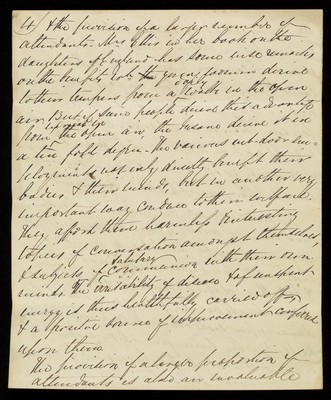 4 & the provision of a larger number of
attendants. Mrs Ellis in her book on the
daughters of England has some wise remarks
on the benefit wh: young females derive
to their tempers from a daily walk in the open
air. But if sane people derive this advantage
from exercise in the open air, the insane derive it in
a ten fold degree. The various out-door em-
ployments not only directly benefit their
bodies & their minds, but in another very
important way conduce to their welfare.
They afford them harmless & interesting
topics of conversation amongst themselves
& subjects of sanitary communion with their own
minds. The irritability of disease & of unspent
energy is thus healthfully carried off
& a positive source of improvement conferred
upon them.
The provision of a larger proportion of
attendants is also an invaluable